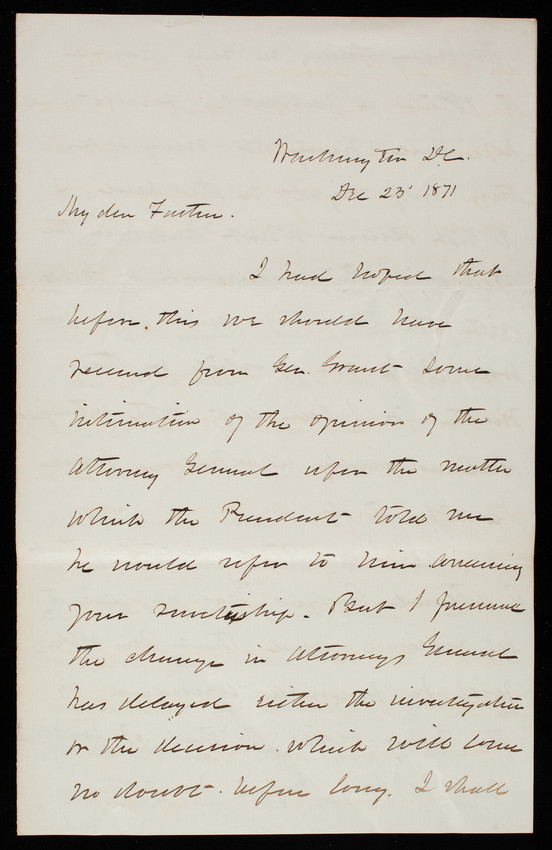 Washington DC.
Dec 23' 1871
My dear Father.
I had hoped that
before this we should have
received from Gen. Grant some
intimation of the opinion of the
Attorney General upon the matter
which the President told me
he would refer to him concerning
your
But I presume
the change in Attorneys General
has delayed either the investigation
or the decision. which will come
no doubt. before long. I shall